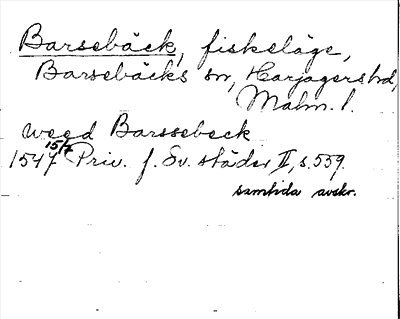 Barsebäck, fiskeläge,
Barsebäcks sn, Harjagers hd,
Malm. l.
weed Barssebeck
1547 15/7 Priv. f. Sv. städer II, s. 559.
samtida avskr.